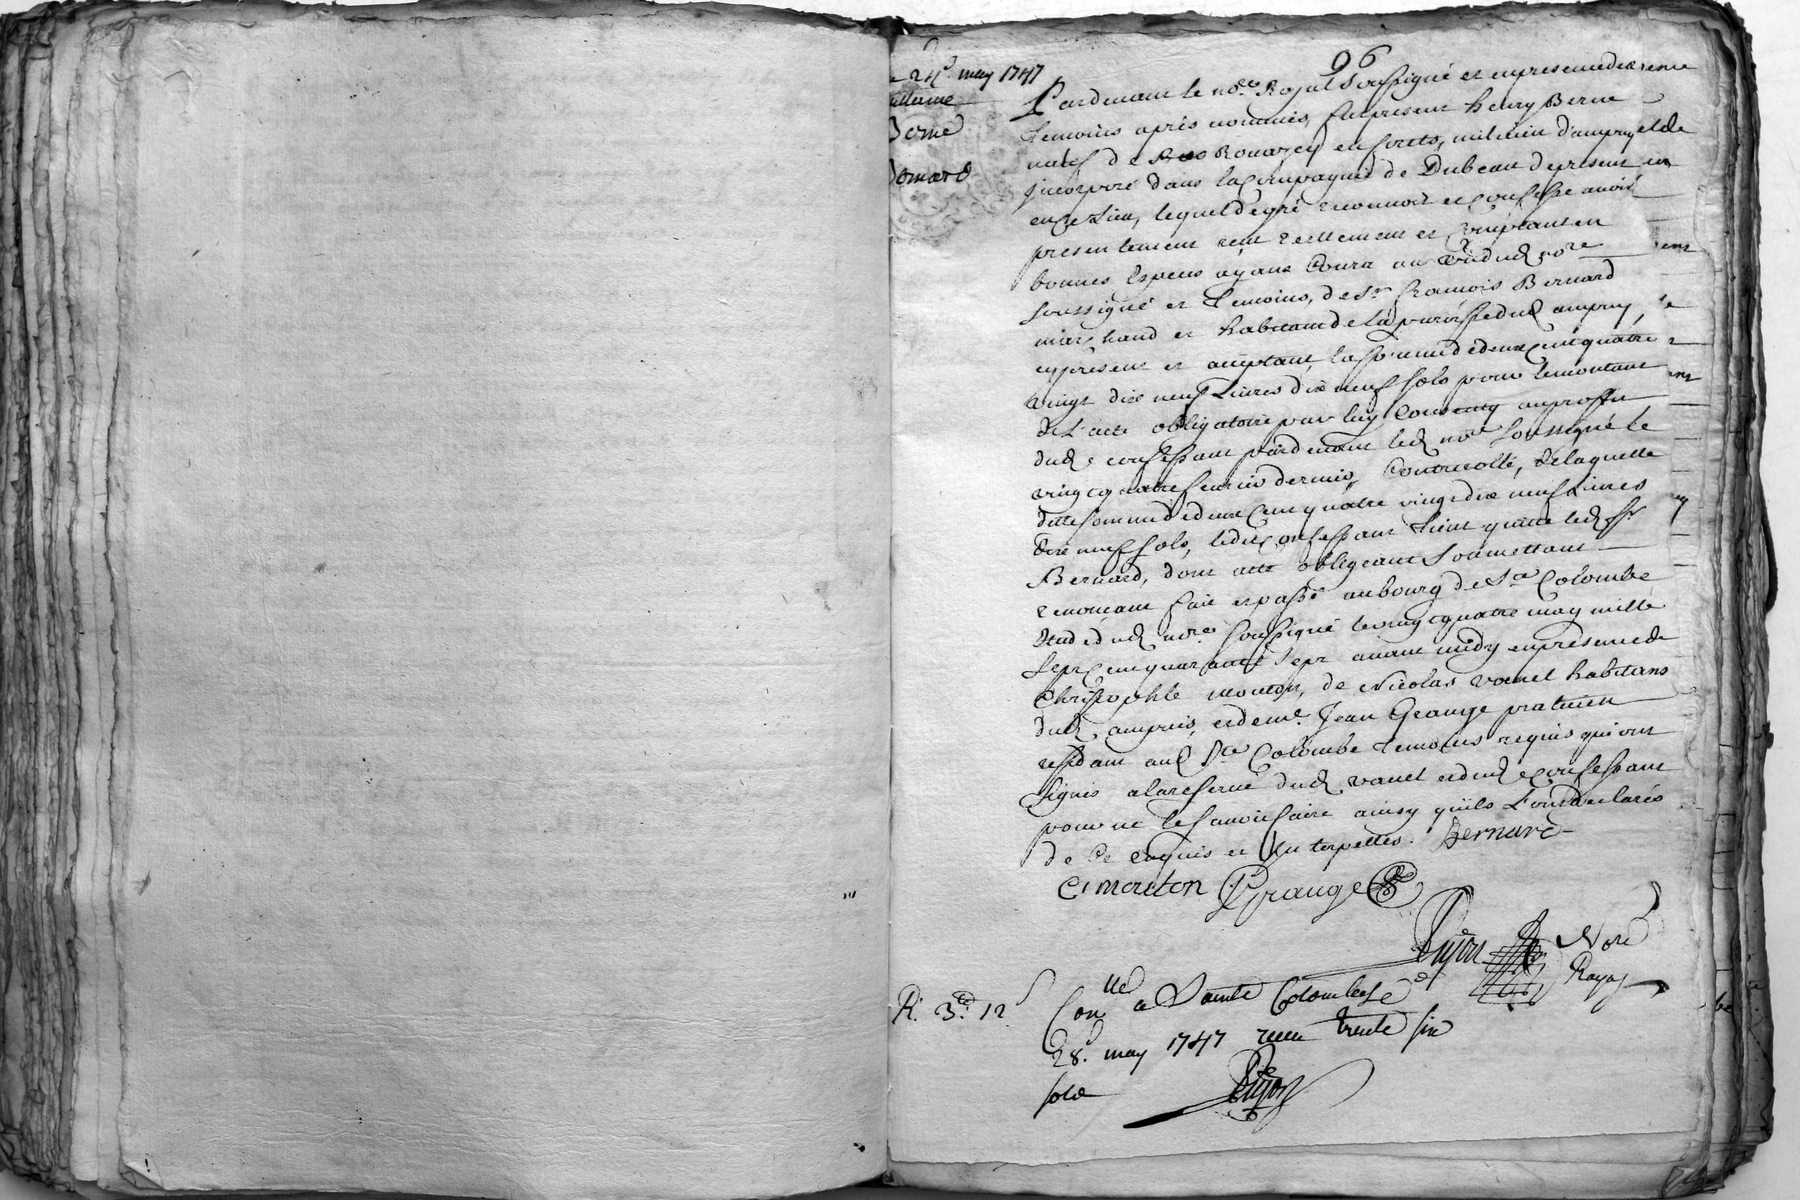 96
24e may 1747
Berne
Bernard
Pardevant le nore Royal soussigné et en presence des
temoins après nommés, fut present henry Berne
natif de Rouazey en forets, milicien d'ampuy et de
incorporé dans la Compagnie de Dubeau de present
en ce Lieu, lequel de gré reconnoit et confesse avoir
presentement reçu reellement et comptant en
bonnes Especes ayans Cours au vû dud nore
soussigné et temoins, de Sr François Bernard
marchand et habitant de la paroisse dud ampuy,
cy present et acceptant, la somme de deux cent quatre
vingt dix neuf Livres dix neuf sols pour le montant
de L'acte obligatoire par luy Consenty au proffit
dud confessant pardevant led nore soussigné le
vingt quatre fevrier dernier, Controollé, de laquelle
ditte somme de deux cent quatre vingt dix neuf Livres
dix neuf sols, ledit confessant tient quitte led Sr
Bernard, dont acte obligeant soumettant
renonçant fait et passé au bourg de Ste Colombe
Etude dud nore soussigné le vingt quatre may mille
sept cent quarante sept avant midy en presence de
Christophle mouton, de Nicolas vanel habitans
dud ampuis, et de me. Jean Grange praticien
residant aud Ste Colombe temoins requis qui ont
signés a la reserve dud vanel et dud confessant
pour ne le sçavoir faire ainsy qu'ils L'ont declarés
de Ce enquis et Interpellés. Bernard
C mouton Grange
Dujon Nore
Royal
R. 3# 12s
Conllé a Sainte Colombe le
28e may 1747 reçu trente six
sols Dujon